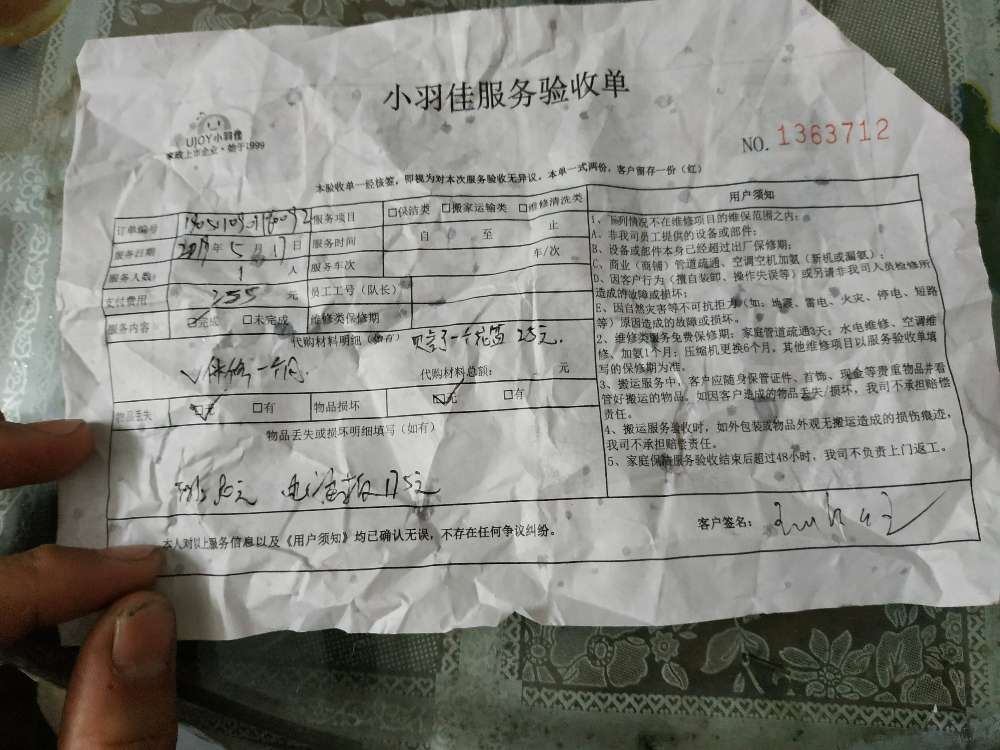 小羽佳服务验收单
UJOY小羽佳
家政上市企业·始于1999
NO. 1363712
本验收单一经核签，即视为对本次服务验收无异议。本单一式两份，客户留存一份（红）
订单编号 服务项目 □保洁类 □搬家运输类 □维修清洗类
服务日期 2019年5月17日 服务时间 自 至 止
服务人数： 1 人 服务车次 车/次
支付费用 255 元 员工工号（队长）
服务内容： ☑完成 □未完成 维修类保修期
代购材料明细（如有）
25元.
✓保修一个月.
代购材料总额： 元
物品丢失 ☑无 □有 物品损坏 ☑无 □有
物品丢失或损坏明细填写（如有）
175元
本人对以上服务信息以及《用户须知》均已确认无误，不存在任何争议纠纷。
用户须知
1、下列情况不在维修项目的维保范围之内：
A、非我司员工提供的设备或部件；
B、设备或部件本身已经超过出厂保修期；
C、商业（商铺）管道疏通、空调空机加氨（新机或漏氨）；
D、因客户行为（擅自装卸、操作失误等）或另请非我司人员检修所
造成的故障或损坏；
E、因自然灾害等不可抗拒力（如：地震、雷电、火灾、停电、短路
等）原因造成的故障或损坏。
2、维修类服务免费保修期：家庭管道疏通3天；水电维修、空调维
修、加氨1个月；压缩机更换6个月，其他维修项目以服务验收单填
写的保修期为准。
3、搬运服务中，客户应随身保管证件、首饰、现金等贵重物品并看
管好搬运的物品。如因客户造成的物品丢失/损坏，我司不承担赔偿
责任。
4、搬运服务验收时，如外包装或物品外观无搬运造成的损伤痕迹，
我司不承担赔偿责任。
5、家庭保洁服务验收结束后超过48小时，我司不负责上门返工。
客户签名：